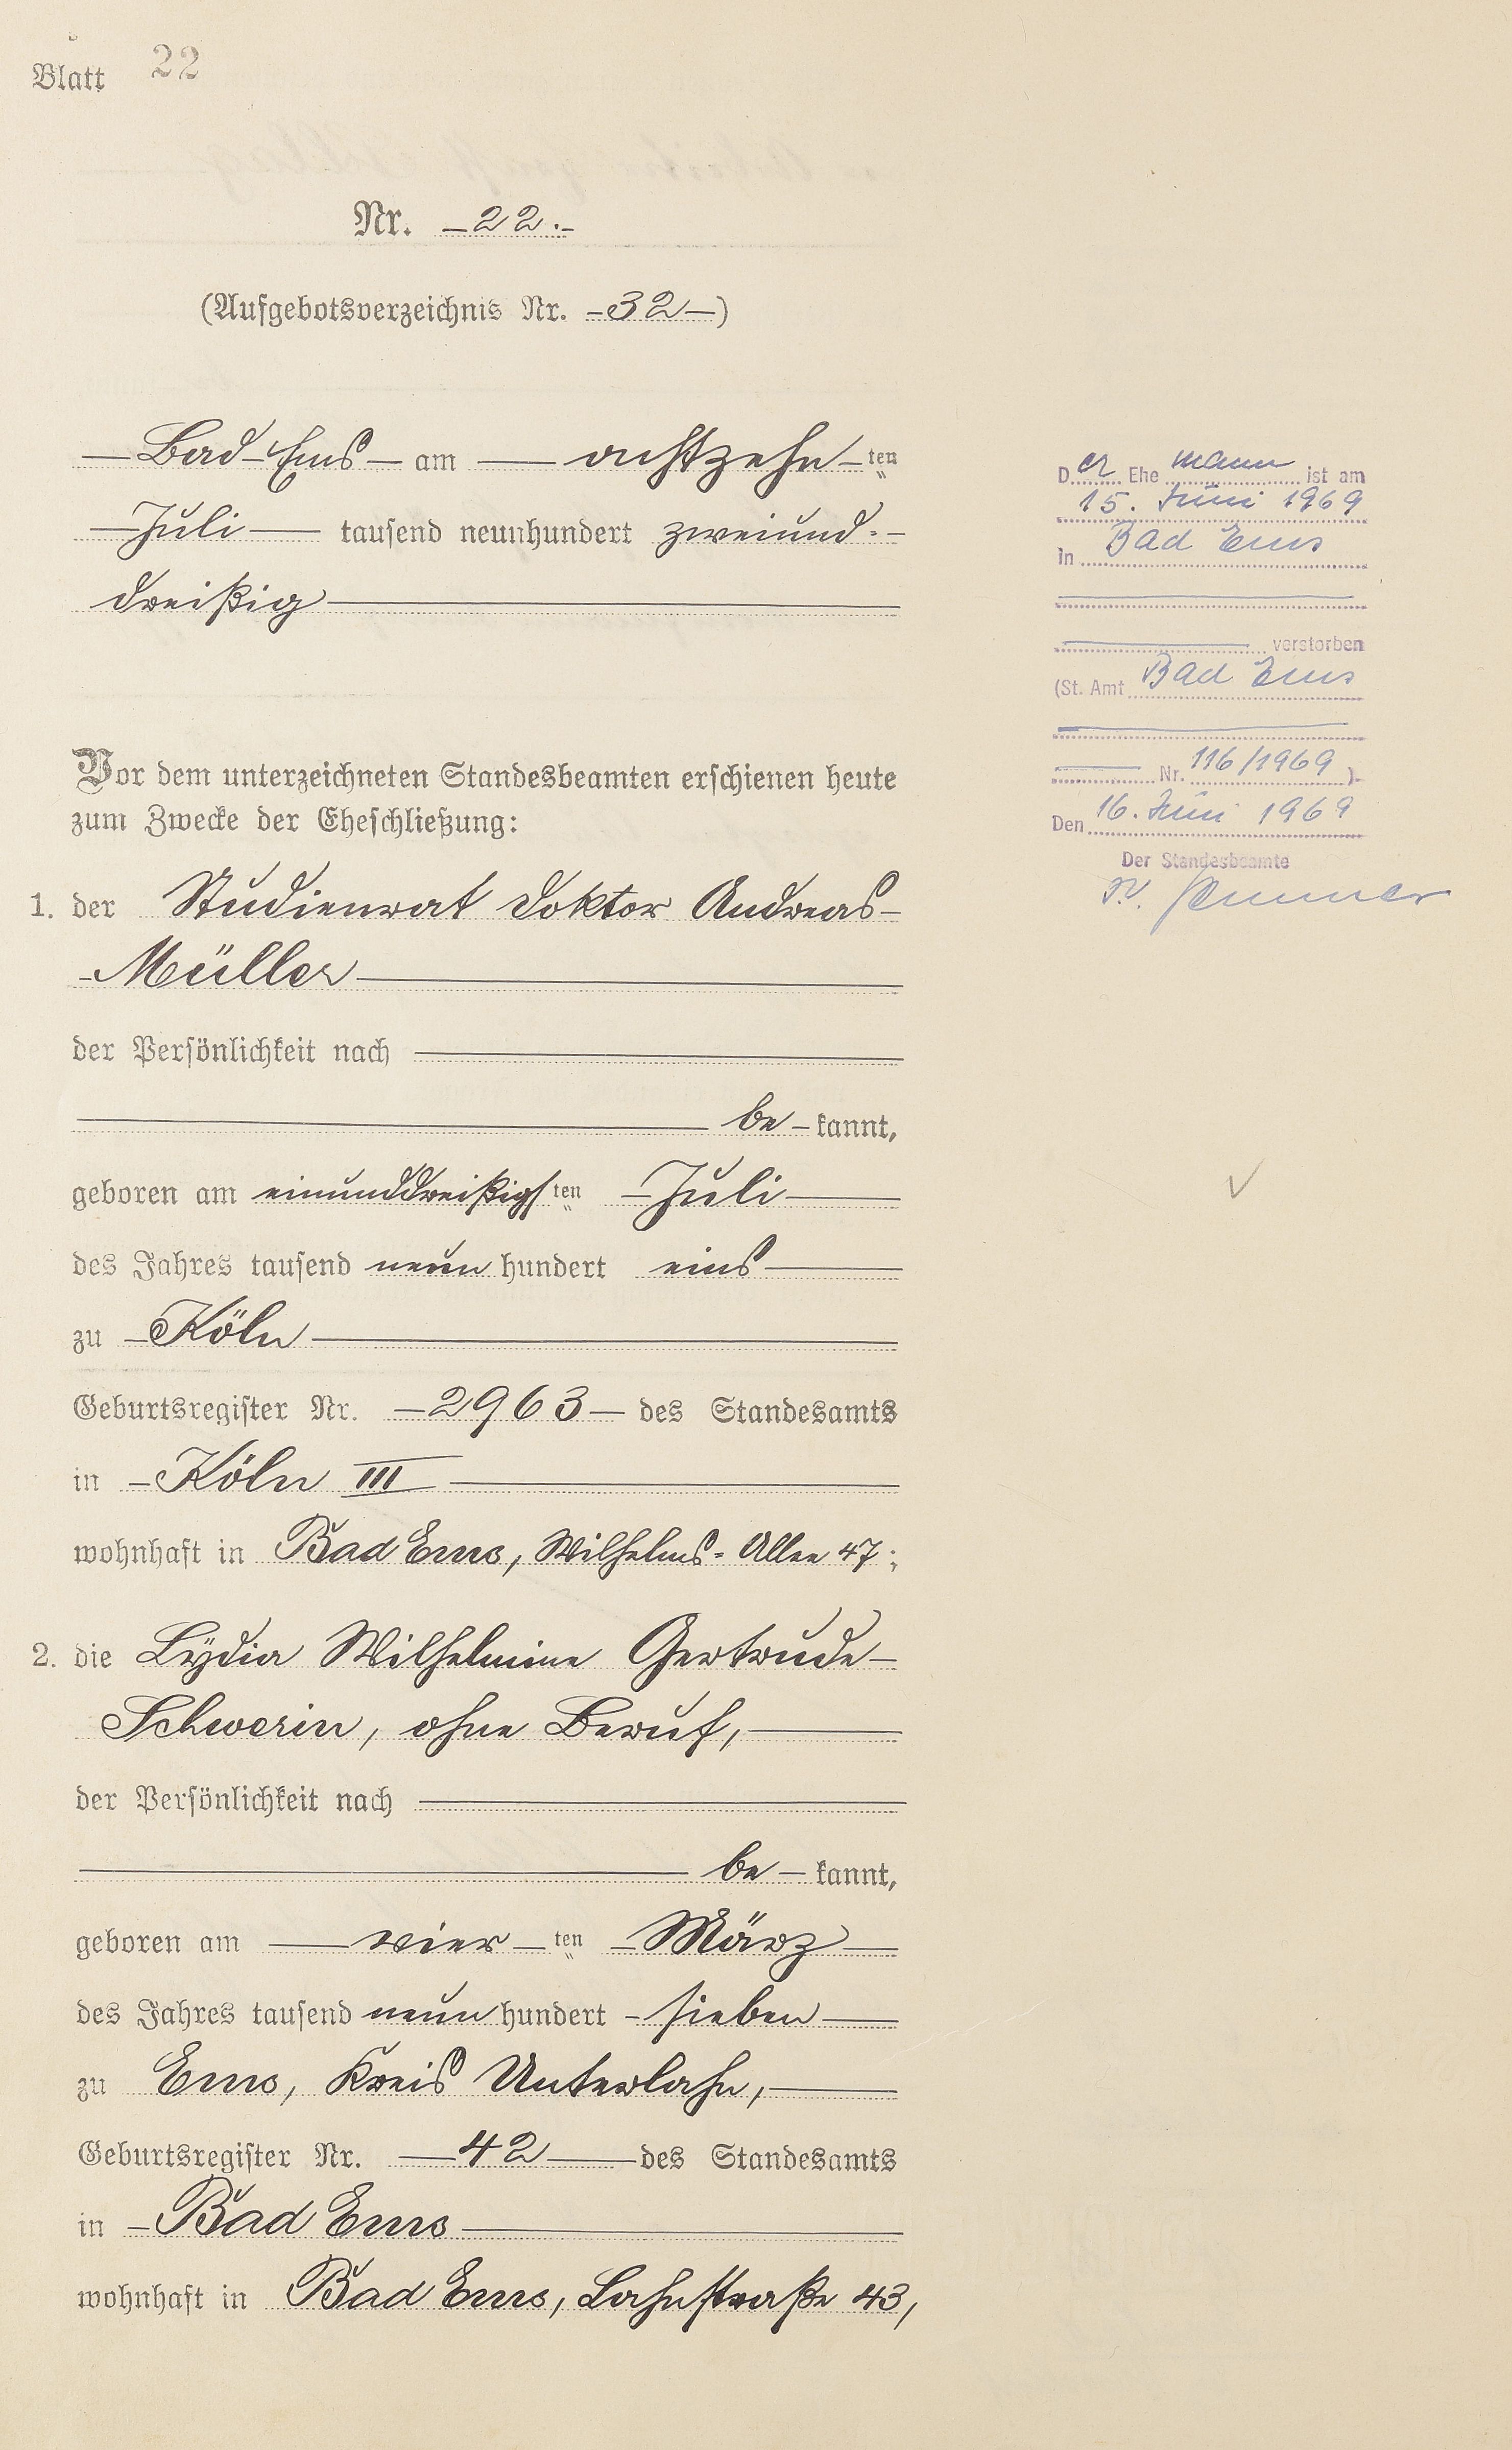 Blatt 22
Nr. 22.
(Aufgebotsverzeichnis Nr. 32)
Bad Ems am achtzehnten
Juli tausend neunhundert zweiund-
dreißig
Vor dem unterzeichneten Standesbeamten erschienen heute
zum Zwecke der Eheschließung:
1. der Studienrat Doktor Andreas
Müller
der Persönlichkeit nach
bekannt,
geboren am einunddreißigsten Juli
des Jahres tausend neunhundert eins
zu Köln
Geburtsregister Nr. 2963 des Standesamts
in Köln III
wohnhaft in Bad Ems, Wilhelms-Allee 47;
2. die Lydia Wilhelmine Gertrude
Schwerin, ohne Beruf,
der Persönlichkeit nach
bekannt,
geboren am vierten März
des Jahres tausend neunhundert sieben
zu Ems, Kreis Unterlahn,
Geburtsregister Nr. 42 des Standesamts
in Bad Ems
wohnhaft in Bad Ems, Lahnstraße 43,
Der Ehemann ist am
15. Juni 1969
in Bad Ems
verstorben
(St. Amt Bad Ems
Nr. 116/1969).
Den 16. Juni 1969
Der Standesbeamte